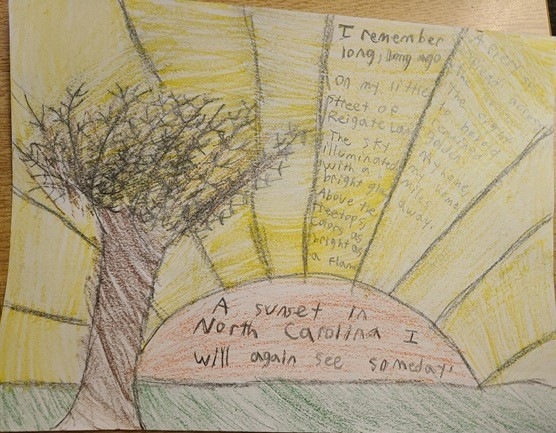 I remember
long, long ago
On my little
street of
Reigate Lane
The sky
illuminated
with a
bright glow
Above the
treetops
Colors as
bright as
a flame
across
The
My home,
my home
miles
away.
A sunset in
North Carolina I
will again see someday.